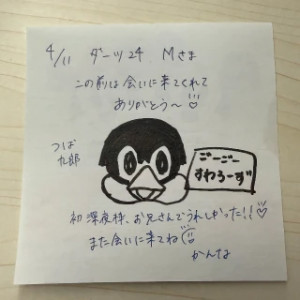 4/11 ダーツ24 Mさま
この前は会いに来てくれて
ありがとう〜
つば
九郎
ごーごー
すわろーず
初深夜枠、お兄さんでうれしかった!!♡
また会いに来てね
かんな